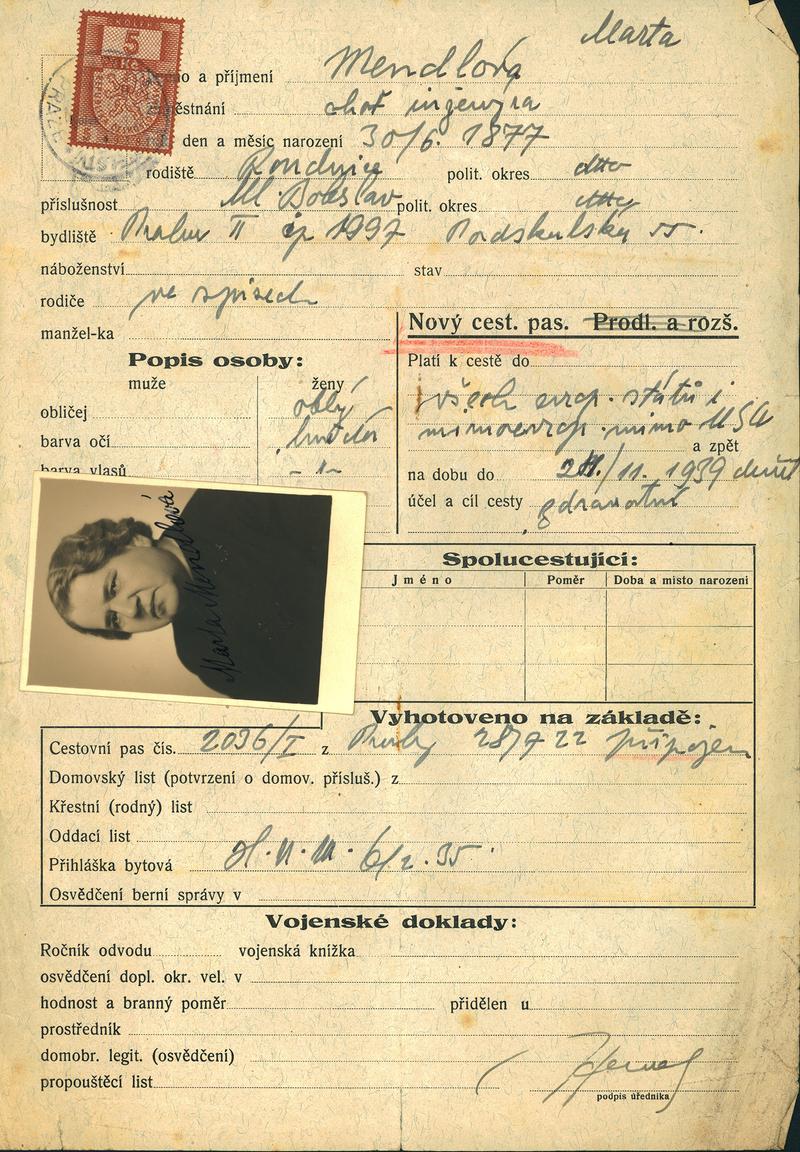 Marta
KOLEK
5
Kč
PRAZE
Jméno a příjmení Mendlová
zaměstnání choť inženýra
den a měsíc narození 30/6. 1877
rodiště polit. okres dtto
příslušnost Ml. Boleslav polit. okres dtto
bydliště Praha II čp 1997 Podskalská 55.
náboženství stav
rodiče ve spisech
manžel-ka
Nový cest. pas. Prodl. a rozš.
Popis osoby:
Platí k cestě do
muže ženy
obličej oblý
všech evrop. států i
barva očí
mimoevrop. mimo USA
a zpět
barva vlasů - " -
na dobu do 28./11. 1939
účel a cíl cesty zdravotní
Marta Mendlová
Spolucestující:
Jméno Poměr Doba a místo narození
Vyhotoveno na základě:
Cestovní pas čís. 2036/I z Prahy 28/7 22 připojen
Domovský list (potvrzení o domov. přísluš.) z
Křestní (rodný) list
Oddací list
Přihláška bytová 6/2. 35
Osvědčení berní správy v
Vojenské doklady:
Ročník odvodu vojenská knížka
osvědčení dopl. okr. vel. v
hodnost a branný poměr přidělen u
prostředník
domobr. legit. (osvědčení)
propouštěcí list
podpis úředníka